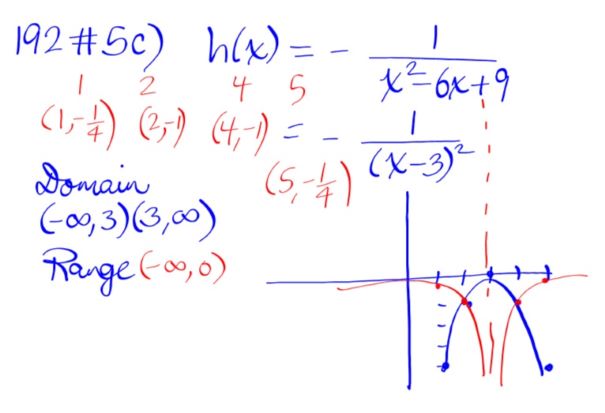 192 #5c) h(x) = - 1/(x²-6x+9)
1 2 4 5
(1,-1/4) (2,-1) (4,-1) = - 1/(x-3)²
(5,-1/4)
Domain
(-∞,3)(3,∞)
Range (-∞,0)